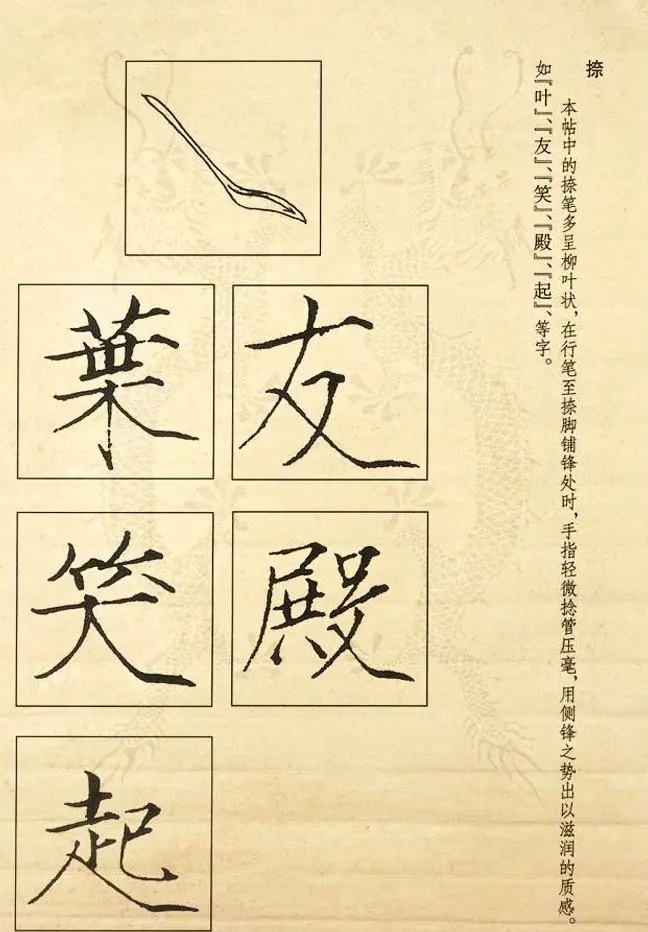 捺
本帖中的捺笔多呈柳叶状,在行笔至捺脚铺锋处时,手指轻微捻管压毫,用侧锋之势出以滋润的质感。
如『叶』、『友』、『笑』、『殿』、『起』、等字。
友
葉
殿
笑
起